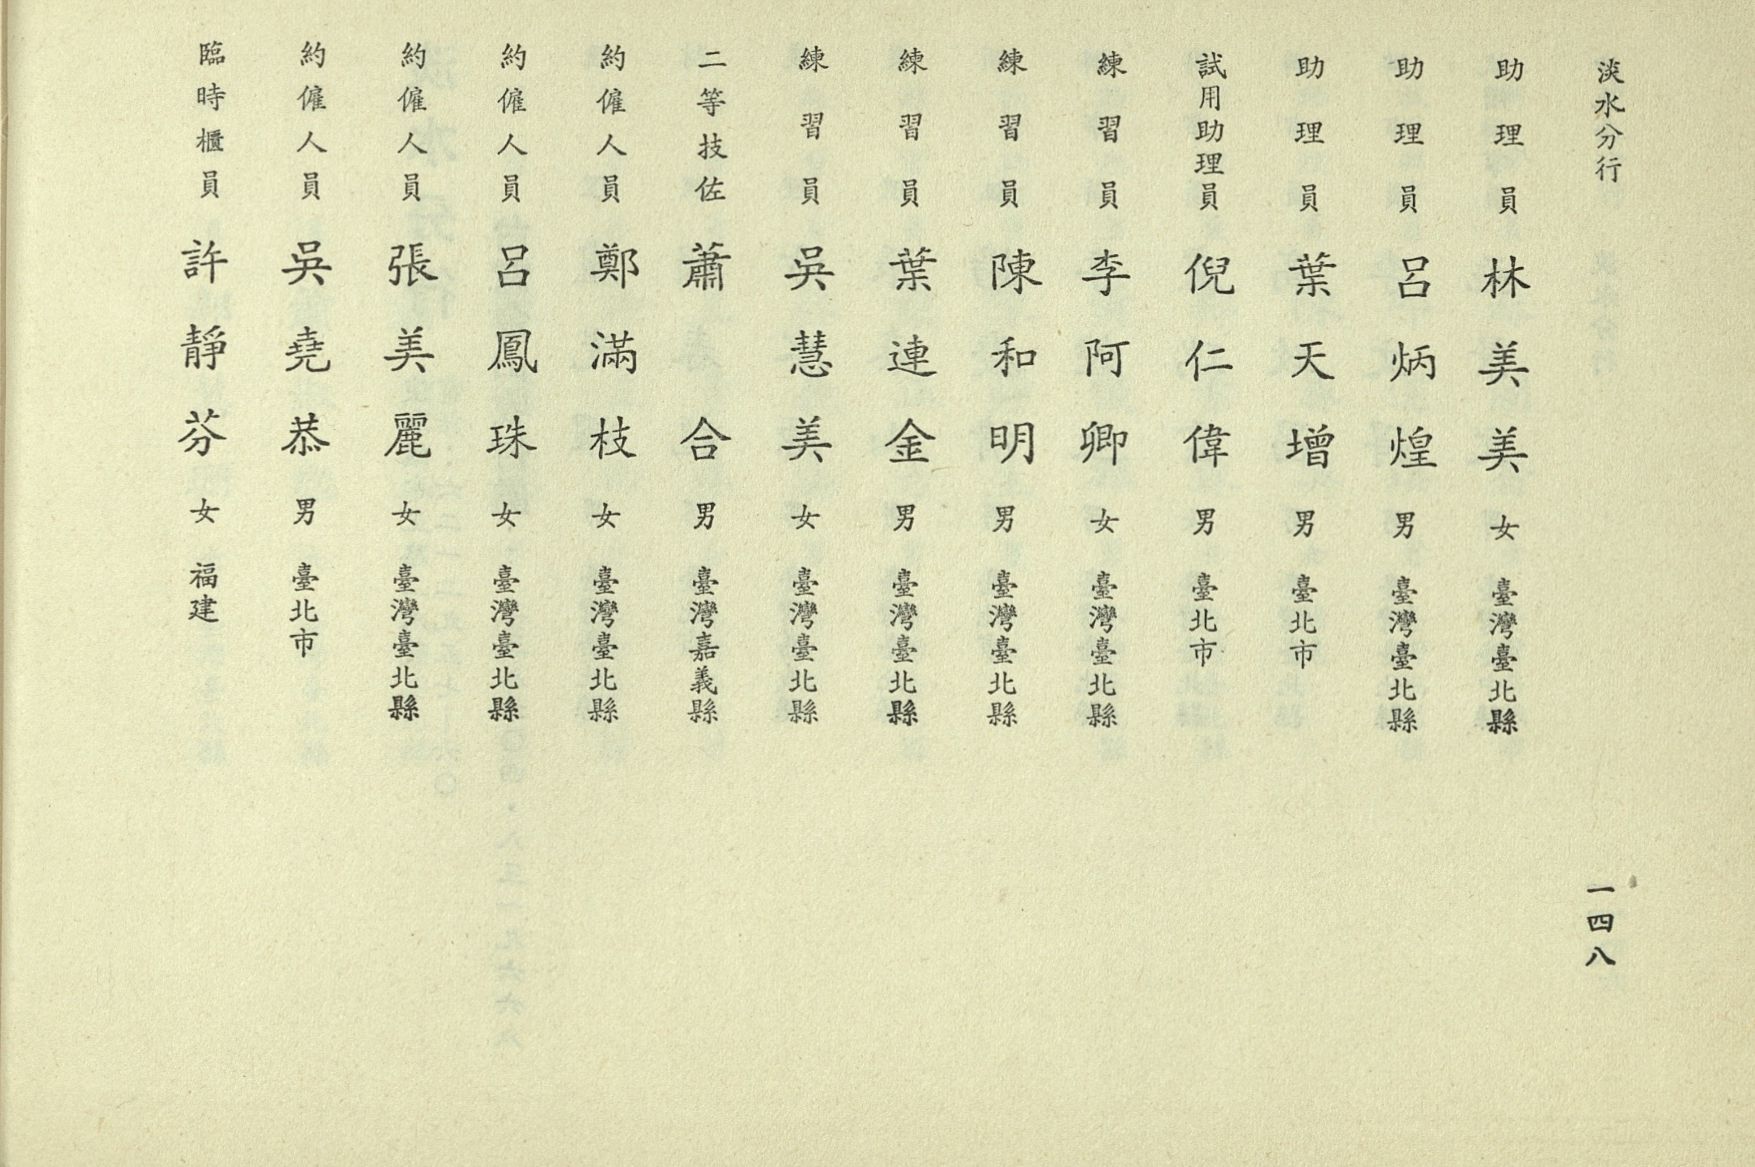 淡水分行 一四八
助理員 林美美 女 臺灣臺北縣
助理員 呂炳煌 男 臺灣臺北縣
助理員 葉天增 男 臺北市
試用助理員 倪仁偉 男 臺北市
練習員 李阿卿 女 臺灣臺北縣
練習員 陳和明 男 臺灣臺北縣
練習員 葉連金 男 臺灣臺北縣
練習員 吳慧美 女 臺灣臺北縣
二等技佐 蕭合 男 臺灣嘉義縣
約僱人員 鄭滿枝 女 臺灣臺北縣
約僱人員 呂鳳珠 女 臺灣臺北縣
約僱人員 張美麗 女 臺灣臺北縣
約僱人員 吳堯恭 男 臺北市
臨時櫃員 許靜芬 女 福建